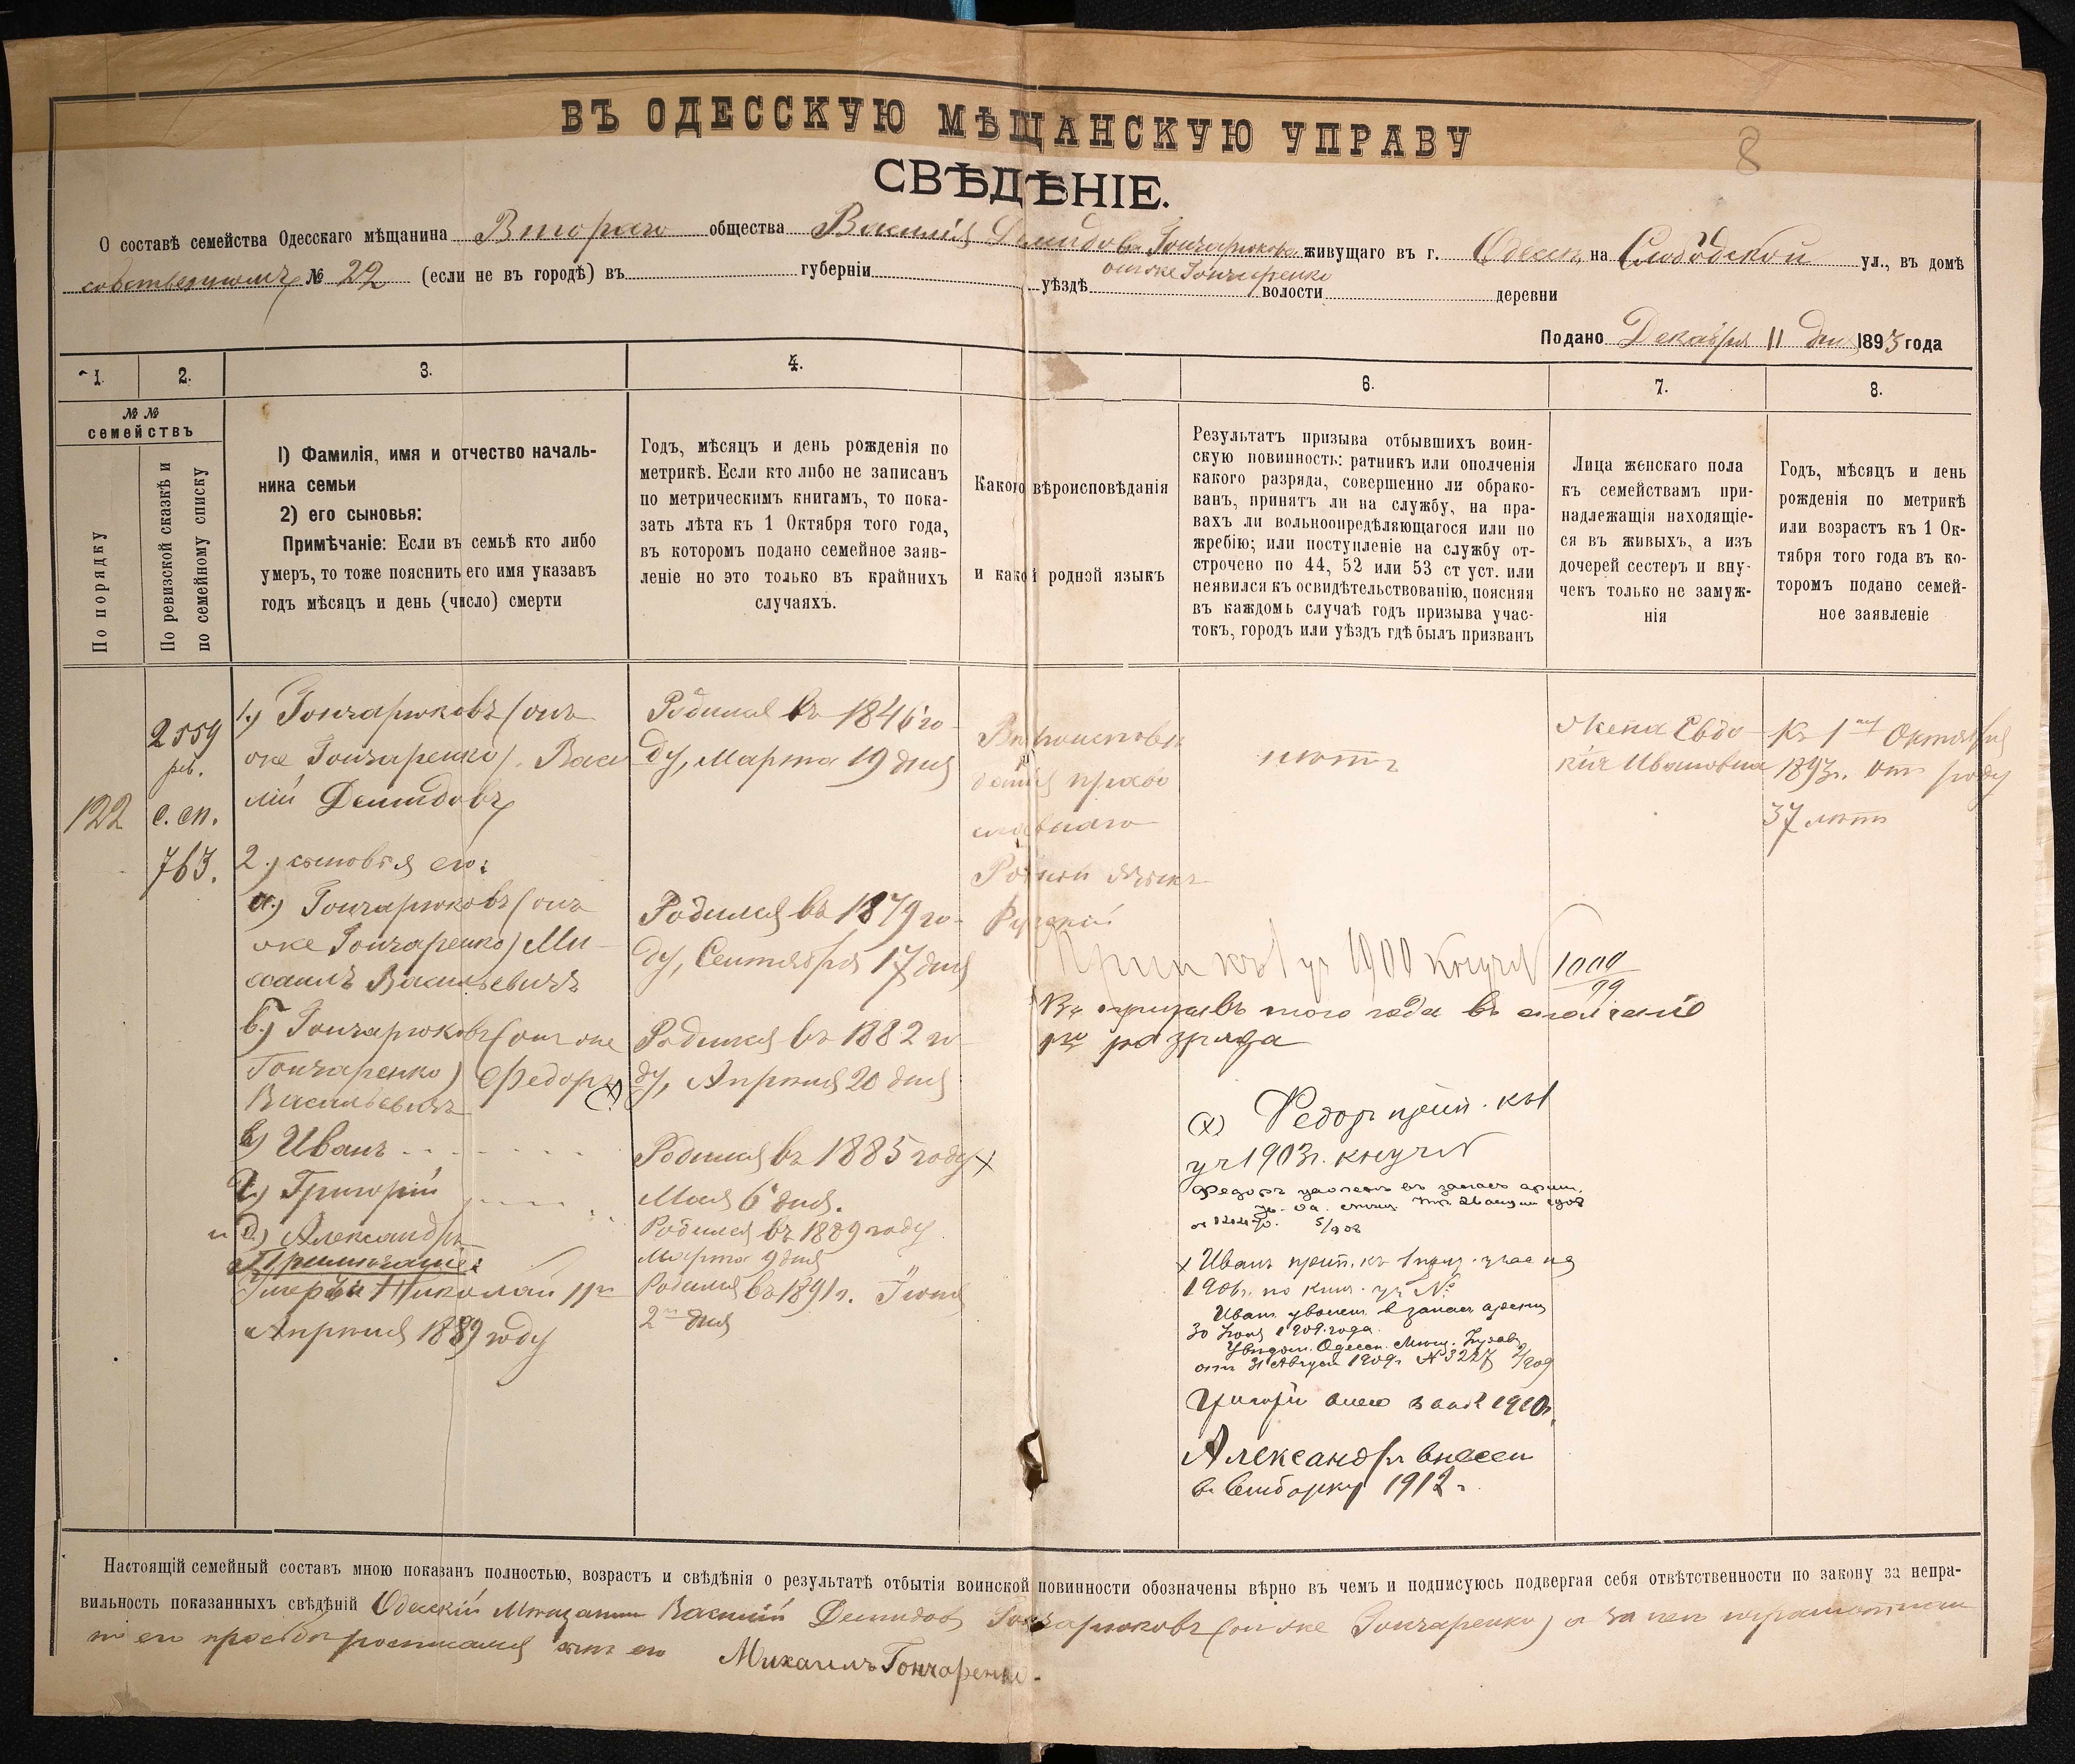 ВЪ ОДЕССКУЮ МѢЩАНСКУЮ УПРАВУ
8
СВѢДѢНІЕ.
О составѣ семейства Одесскаго мѣщанина Второго общества Василія Демидова Гончарюкова живущаго въ г. Одессѣ, на Слободской ул., въ домѣ
онъ же Гончаренко
собственномъ № 22 (если не въ городѣ) въ губерніи уѣздѣ волости деревни
Подано Декабря 11 дня 1893 года
1. 2. 3. 4. 6. 7. 8.
№ №
семействъ
По порядку
По ревизской сказкѣ и
по семейному списку
1) Фамилія, имя и отчество началь-
ника семьи
2) его сыновья:
Примѣчаніе: Если въ семьѣ кто либо
умеръ, то тоже пояснить его имя указавъ
годъ мѣсяцъ и день (число) смерти
Годъ, мѣсяцъ и день рожденія по
метрикѣ. Если кто либо не записанъ
по метрическимъ книгамъ, то пока-
зать лѣта къ 1 Октября того года,
въ которомъ подано семейное заяв-
леніе но это только въ крайнихъ
случаяхъ.
Какого вѣроисповѣданія
и какой родной языкъ
Результатъ призыва отбывшихъ воин-
скую повинность: ратникъ или ополченія
какого разряда, совершенно ли обрако-
ванъ, принятъ ли на службу, на пра-
вахъ ли вольноопредѣляющагося или по
жребію; или поступленіе на службу от-
строчено по 44, 52 или 53 ст уст. или
неявился къ освидѣтельствованію, поясняя
въ каждомъ случаѣ годъ призыва учас-
токъ, городъ или уѣздъ гдѣ былъ призванъ
Лица женскаго пола
къ семействамъ при-
надлежащія находящіе-
ся въ живыхъ, а изъ
дочерей сестеръ и вну-
чекъ только не замуж-
нія
Годъ, мѣсяцъ и день
рожденія по метрикѣ
или возрастъ къ 1 Ок-
тября того года въ ко-
торомъ подано семей-
ное заявленіе
122
2559
рев.
с. сп.
763.
1.) Гончарюковъ (онъ
же Гончаренко) Васи
лій Демидовъ
2.) сыновья его:
а.) Гончарюковъ (онъ
же Гончаренко) Ми-
хаилъ Васильевичъ
б.) Гончарюковъ (онъ же
Гончаренко) Федоръ
Васильевичъ
в) Иванъ
г) Григорій
и д) Александръ
Примѣчаніе:
Умерший Николай 11го
Апрѣля 1889 году
Родился въ 1846 го-
ду, Марта 19 дня
Родился въ 1879 го-
ду, Сентября 17 дня
Родился въ 1882 го-
ду, Апрѣля 20 дня
Родился въ 1885 году х
Мая 6 дня.
Родился въ 1889 году
Марта 9 дня
Родился въ 1891 г. Іюня
2го дня
Вѣроисповѣ
данія право
славнаго
Родной языкъ
Русскій
нѣтъ
жена Евдо-
кія Ивановна
Къ 1му Октября
1893г. отъ роду
37 лѣтъ
1900
1000/99
Въ призывъ того года въ ополченіе
1го разряда
(х) Федоръ прип. къ 1
уч 1903г. кн уч №
Федоръ уволенъ въ запасъ арм.
х Иванъ прип. къ 1 приз. участ на
1906г. по книг. уч №
Иванъ уволенъ в запас армии
30 1909 года.
Увѣдом. Одесск. Мѣщ.
отъ 31 Августа 1909г. № 3227
Григорій 1910г.
Александръ внесен
в выборку 1912г.
Настоящій семейный составъ мною показанъ полностью, возрастъ и свѣдѣнія о результатѣ отбытія воинской повинности обозначены вѣрно въ чемъ и подписуюсь подвергая себя отвѣтственности по закону за непра-
вильность показанныхъ свѣдѣній Одесскій Мѣщанинъ Василій Демидовъ Гончарюковъ (онъ же Гончаренко) а за него неграмотнаго
по его просьбѣ росписался сынъ его Михаилъ Гончаренко.